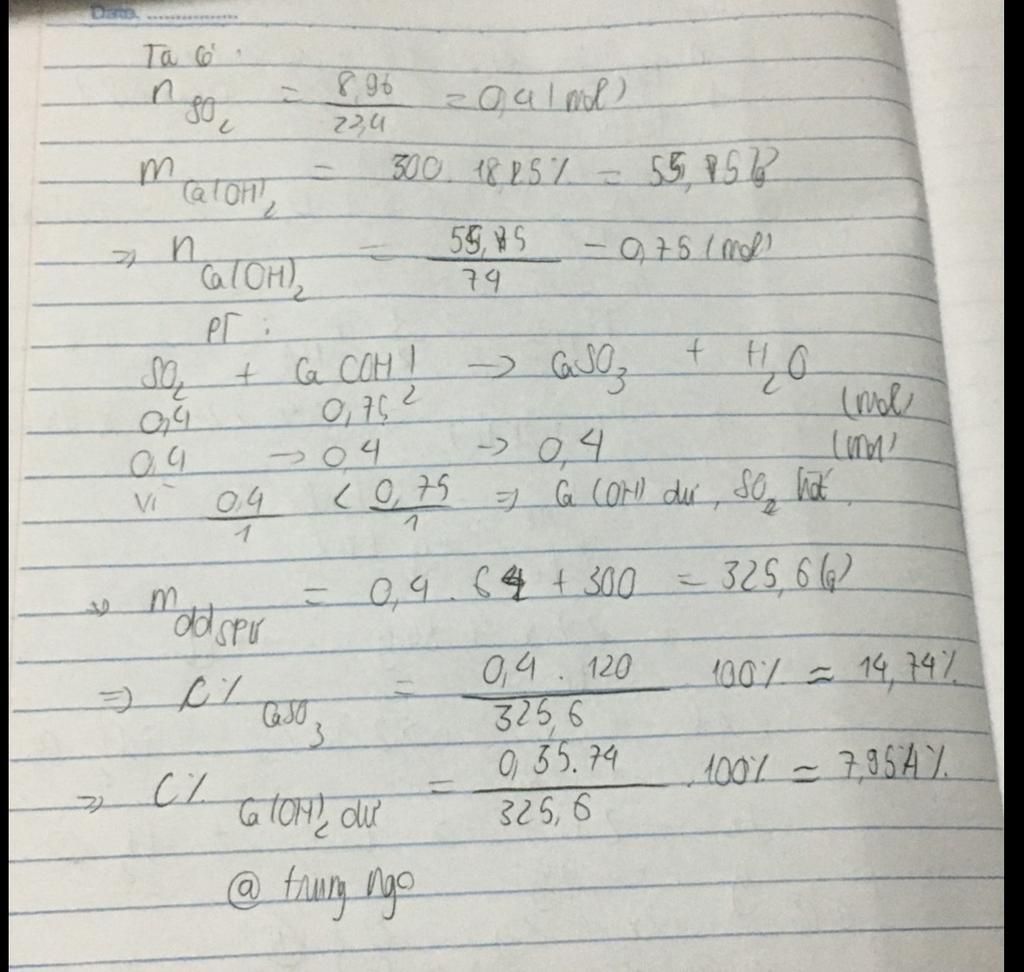 Date. ..............
Ta có:
n SO₂ = 8,96/22,4 = 0,4 (mol)
m Ca(OH)₂ = 300. 18,25% = 55,75 g
⇒ n Ca(OH)₂ = 55,75/74 = 0,75 (mol)
PT:
SO₂ + Ca(OH)₂ → CaSO₃ + H₂O
0,4 0,75 (mol)
0,4 → 0,4 → 0,4 (mol)
Vì 0,4/1 < 0,75/1 ⇒ Ca(OH) dư, SO₂ hết.
⇒ m ddspư = 0,4 . 64 + 300 = 325,6 (g)
⇒ C% CaSO₃ = 0,4 . 120/325,6 100% = 14,74%.
⇒ C% Ca(OH)₂ dư = 0,35.74/325,6 .100% = 7,954%.
@ trung ngo